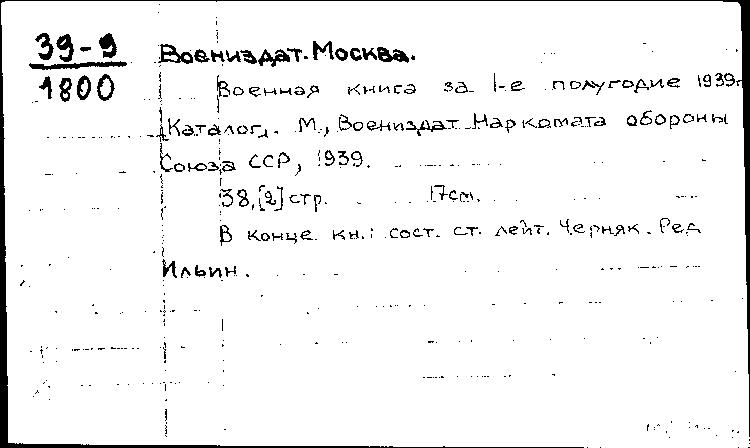 39-9
1800
Воениздат. Москва.
Военная книга за 1-е полугодие 1939г.
Каталог. М., Воениздат Наркомата обороны
Союза ССР, 1939.
38,[2] стр. 17см.
В конце кн.: сост. ст. лейт. Черняк. Ред
Ильин.